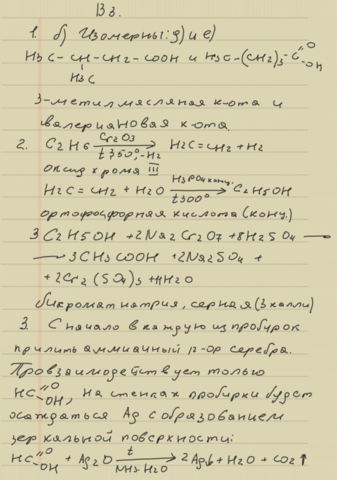 В3.
1. б) Изомеры: д) и е)
H3C - CH - CH2 - COOH и H3C-(CH2)3-C=O-OH
H3C
3-метилмасляная к-ота и
валериановая к-ота.
2. C2H6 Cr2O3 t 350°, -H2 H2C=CH2 + H2
оксид хрома III
H2C=CH2 + H2O H3PO4 конц. t300° C2H5OH
ортофосфорная кислота (конц.)
3 C2H5OH + 2Na2Cr2O7 + 8H2SO4 —
— 3CH3COOH + 2Na2SO4 +
+ 2Cr2(SO4)3 + 11H2O
бихромат натрия, серная (3 капли)
3. Сначало в каждую из пробирок
прилить аммиачный р-ор серебра.
Провзаимодействует только
HC=O-OH, на стенках пробирки будет
осаждаться Ag с образованием
зеркальной поверхности:
HC=O-OH + Ag2O t NH3·H2O 2Ag↓ + H2O + CO2↑